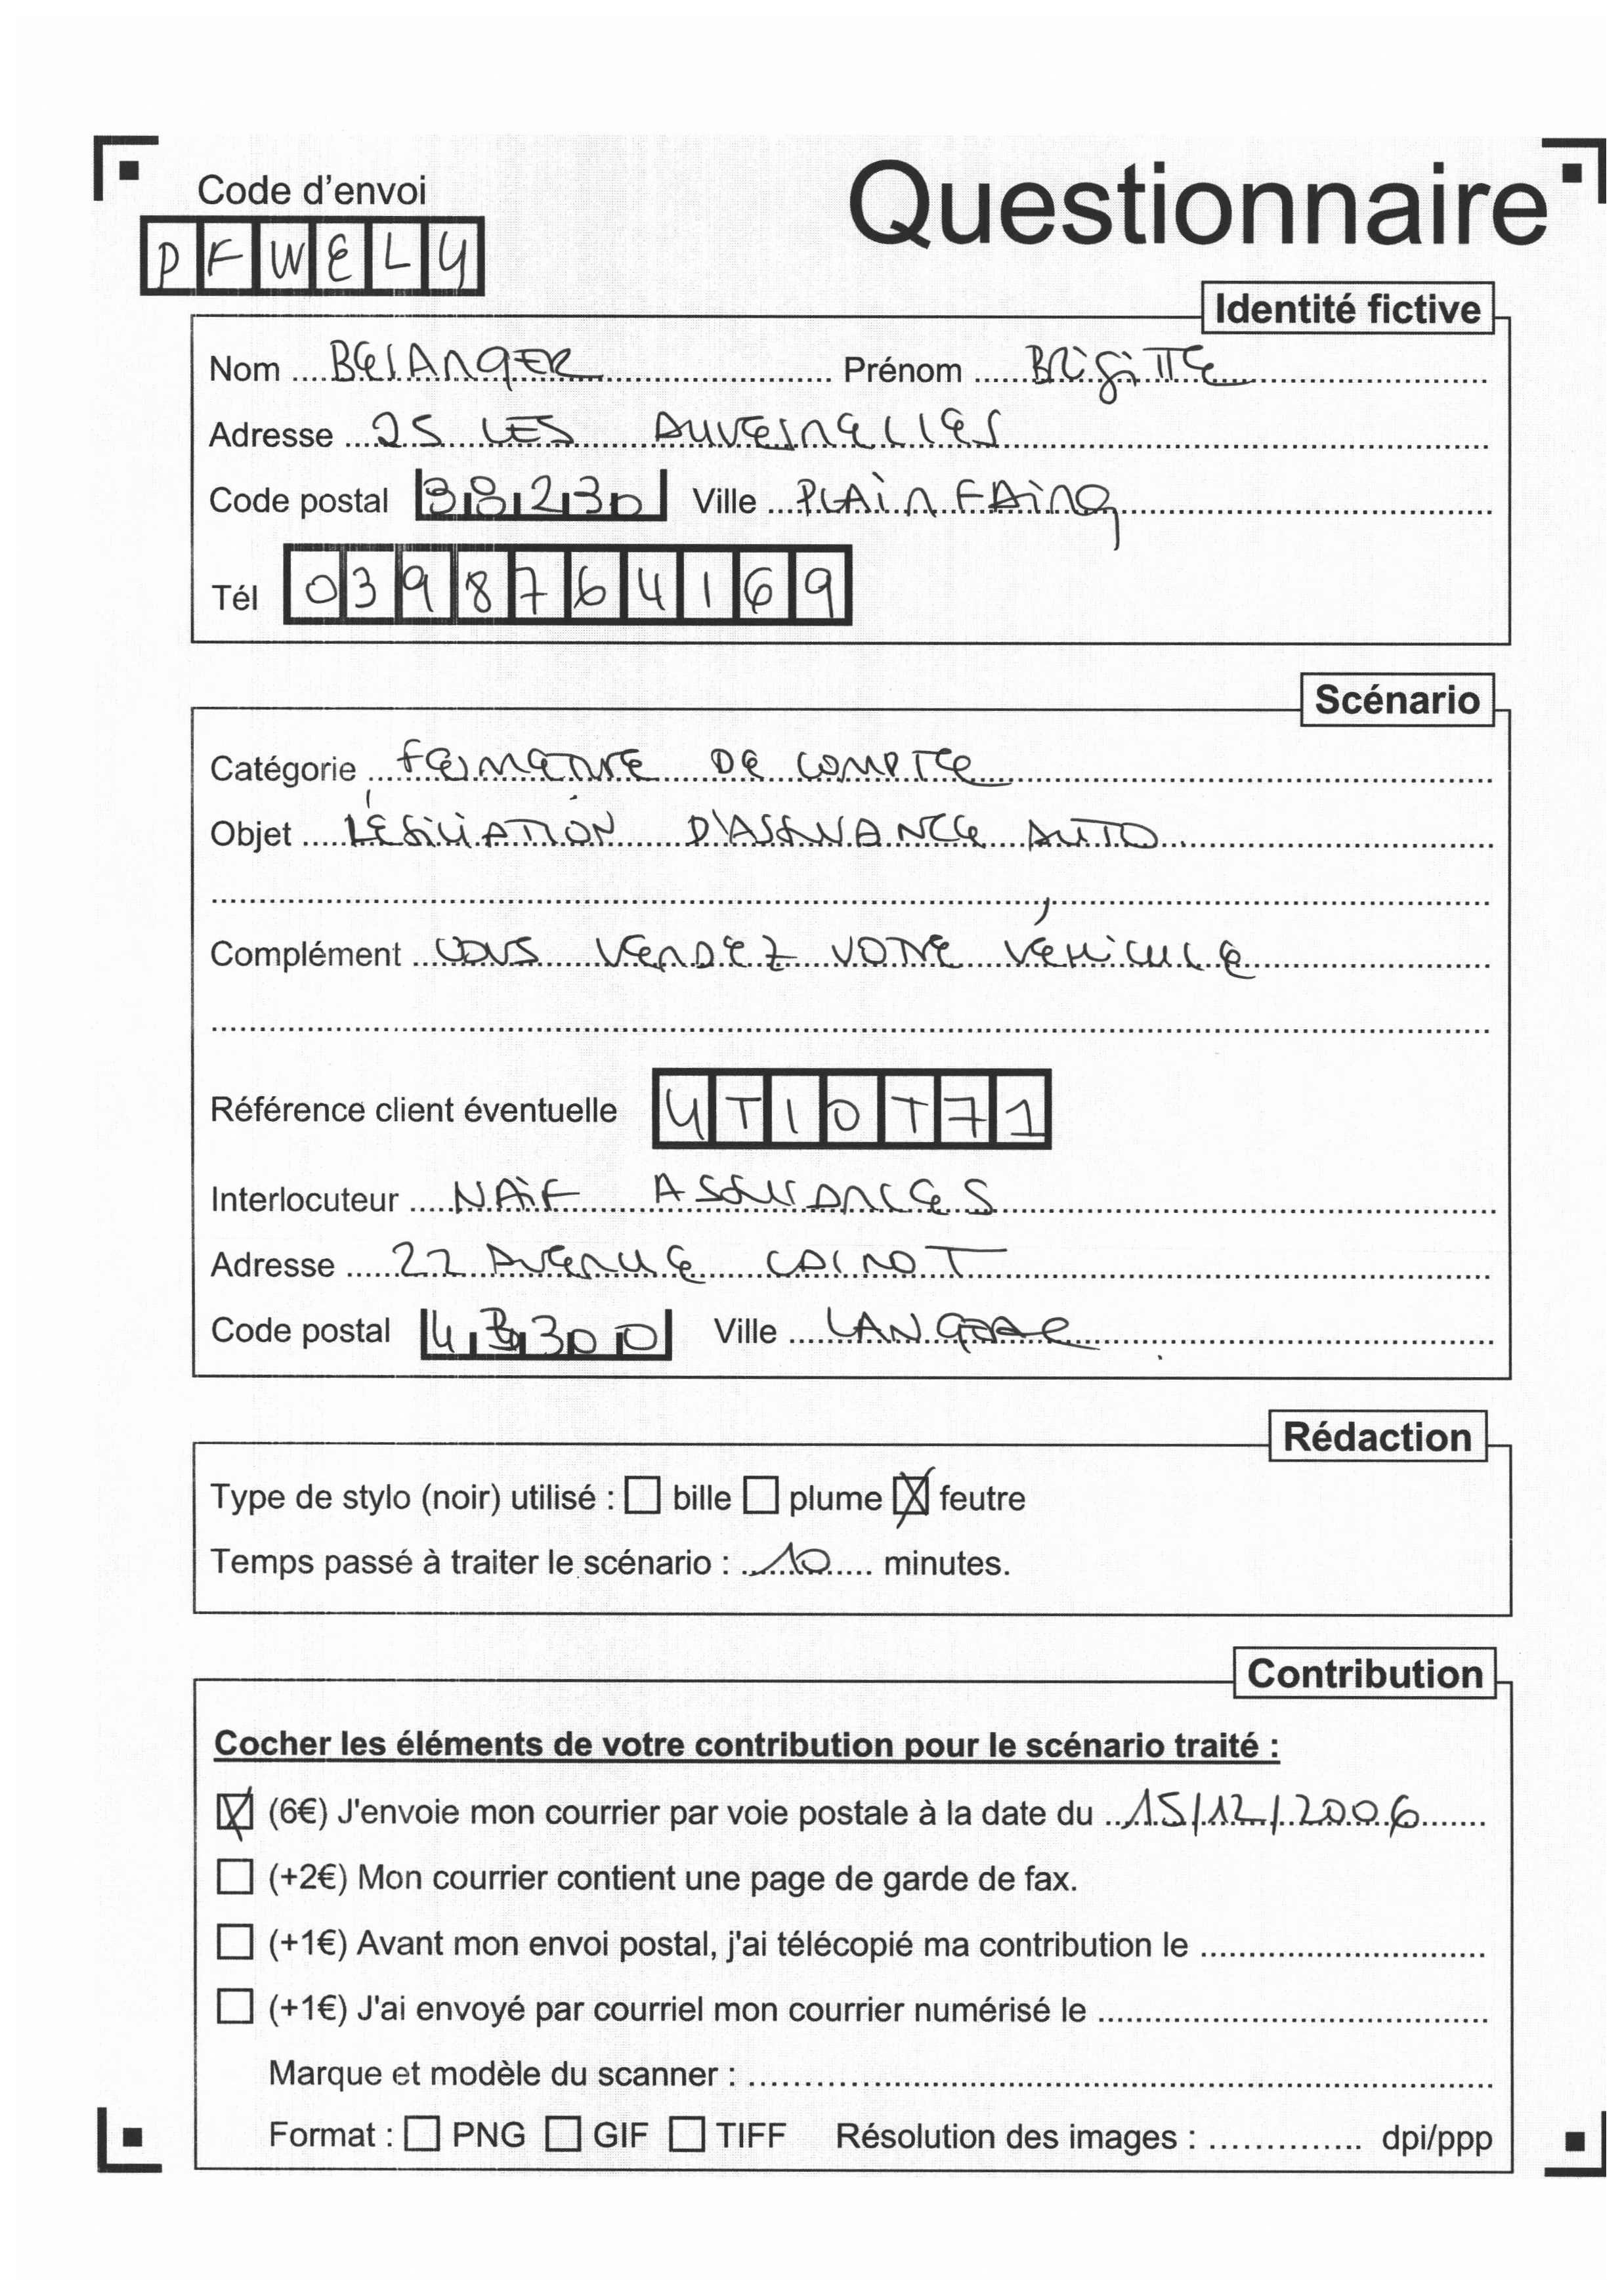 Code d'envoi
PFWELY
Questionnaire
Identité fictive
Nom BELANGER Prénom BRIGITTE
Adresse 25 LES
Code postal 88230 Ville PLAINFAING
Tél 0398764169
Scénario
Catégorie FERMETURE DE COMPTE
Objet RÉSILIATION D'ASSURANCE AUTO
Complément VOUS VENDEZ VOTRE VÉHICULE
Référence client éventuelle UTIOT71
Interlocuteur NAÏF ASSURANCES
Adresse 22 AVENUE CARNOT
Code postal 43300 Ville LANGEAC
Rédaction
Type de stylo (noir) utilisé : bille plume feutre
Temps passé à traiter le scénario : 10 minutes.
Contribution
Cocher les éléments de votre contribution pour le scénario traité :
(6€) J'envoie mon courrier par voie postale à la date du 15/12/2006
(+2€) Mon courrier contient une page de garde de fax.
(+1€) Avant mon envoi postal, j'ai télécopié ma contribution le
(+1€) J'ai envoyé par courriel mon courrier numérisé le
Marque et modèle du scanner :
Format : PNG GIF TIFF Résolution des images : dpi/ppp